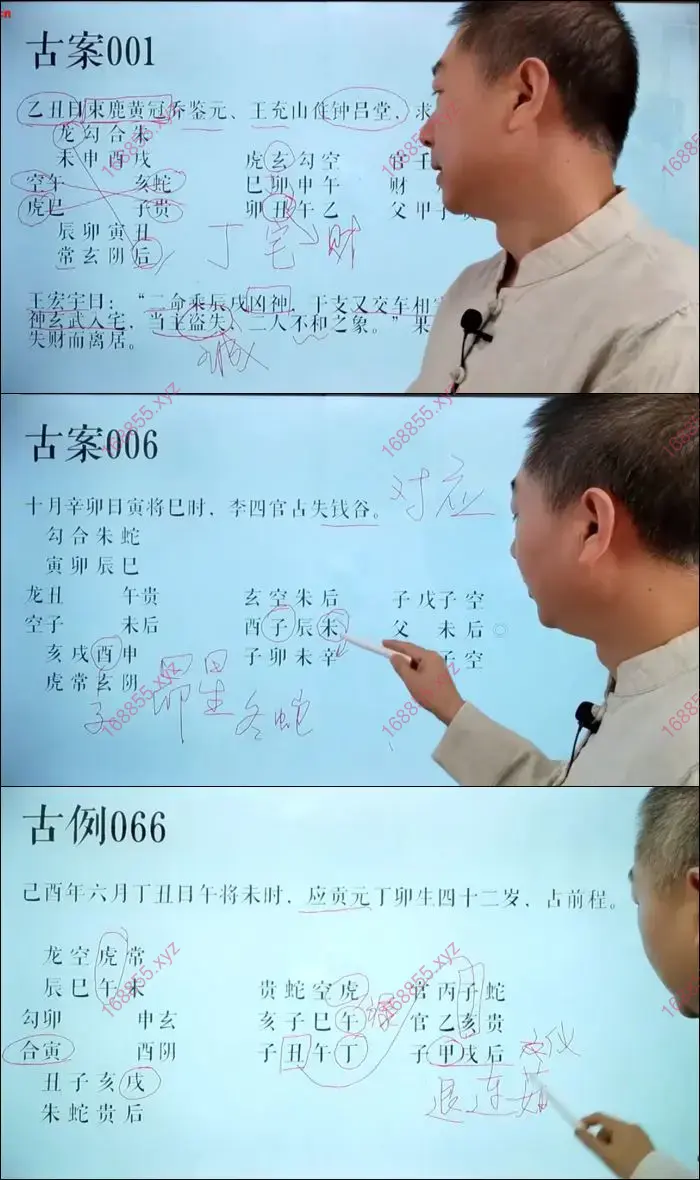 古案001
乙丑日束鹿黄冠乔鉴元、王充山住钟吕堂，求
龙勾合朱
未申酉戌 虎玄勾空 官壬
空午 亥蛇 巳卯申午 财
虎巳 子贵 卯丑午乙 父甲子贵
辰卯寅丑
常玄阴后
丁宅 财
王宏宇曰："二命乘辰戌凶神，干支又交车相害
神玄武入宅，当主盗失、二人不和之象。"果
失财而离居。
贼
古案006
十月辛卯日寅将巳时，李四官占失钱谷。
对应
勾合朱蛇
寅卯辰巳
龙丑 午贵 玄空朱后 子戊子空
空子 未后 酉子辰未 父 未后
亥戌酉申 子卯未辛 子空
虎常玄阴
卯星 冬蛇
古例066
己酉年六月丁丑日午将未时，应贡元丁卯生四十二岁，占前程。
龙空虎常
辰巳午未 贵蛇空虎 官丙子蛇
勾卯 申玄 亥子巳午 官乙亥贵
合寅 酉阴 子丑午丁 子甲戌后
丑子亥戌
朱蛇贵后
禄
退连茹
168855.xyz
168855.xyz
168855.xyz
168855.xyz
168855.xyz
168855.xyz
168855.xyz
168855.xyz
168855.xyz